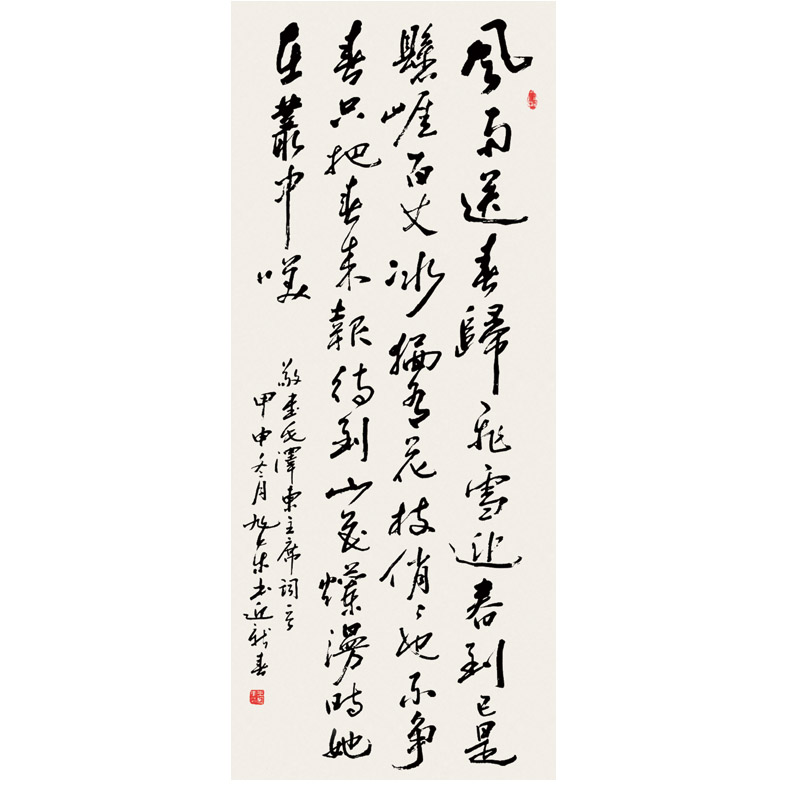 風雨送春歸飛雪迎春到已是
懸崖百丈冰猶有花枝俏俏也不争
春只把春来報待到山花爛漫時她
在叢中咲
敬書毛澤東主席詞一首
甲申冬月旭東書迎新春